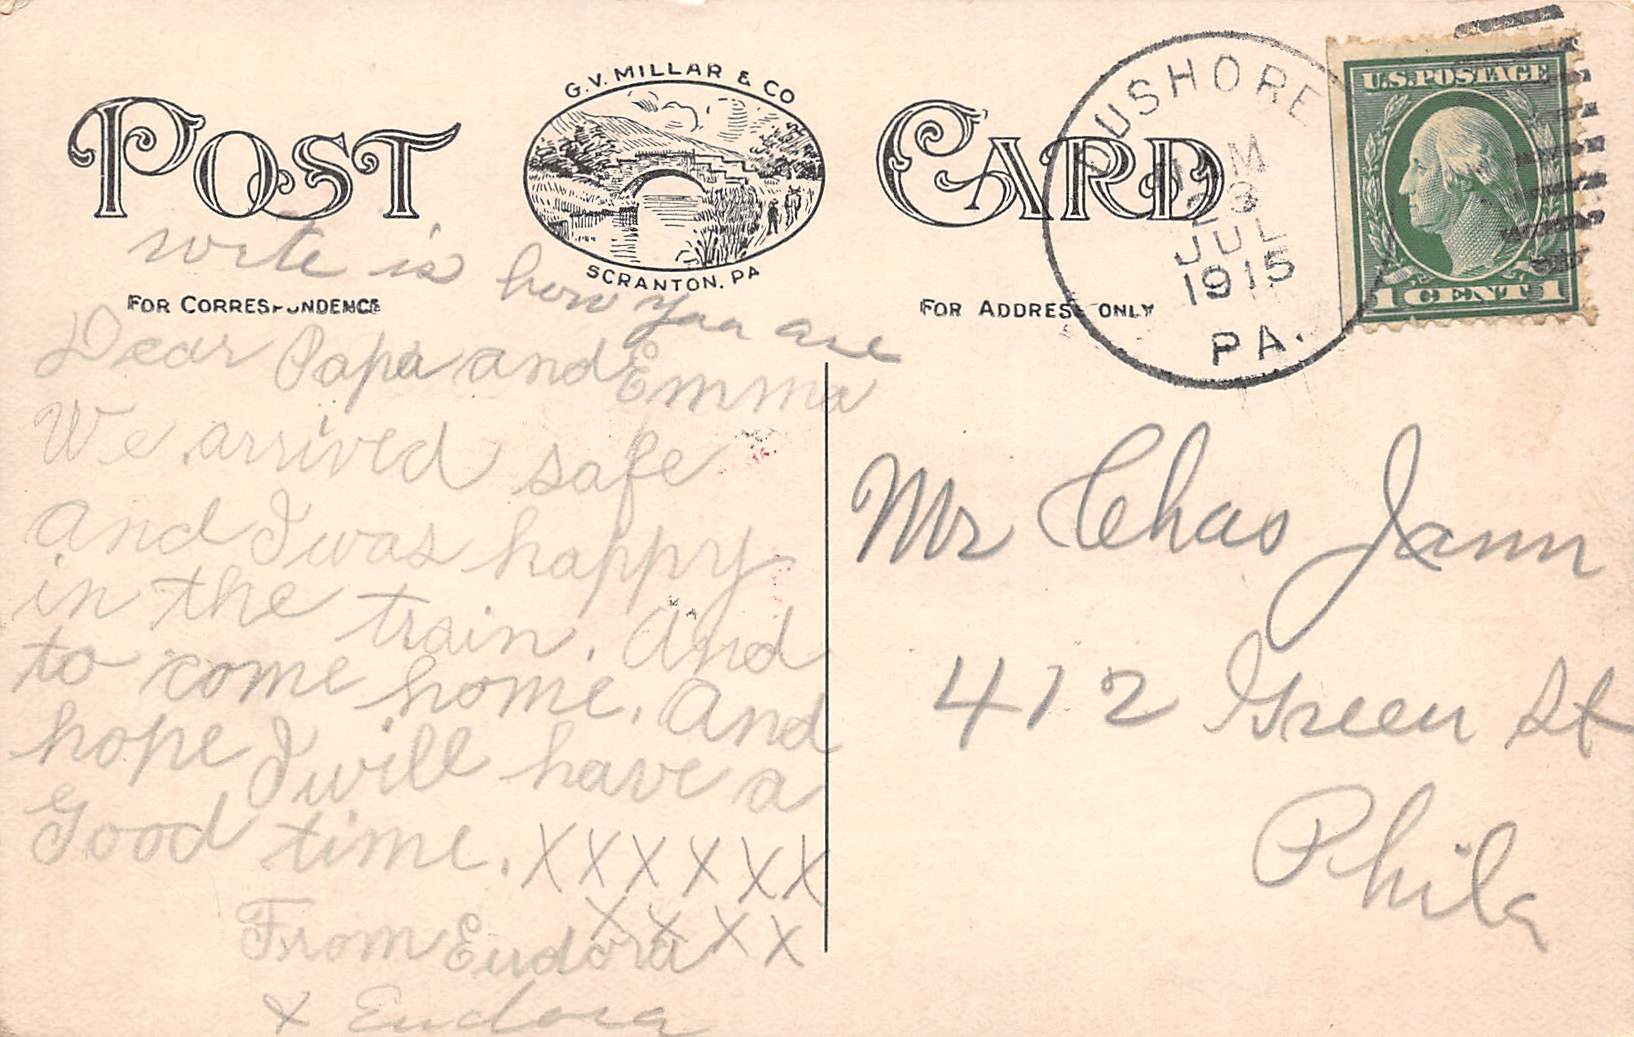 G.V. MILLAR & CO
POST CARD
SCRANTON, PA
write is
how you are
FOR CORRESPONDENCE
FOR ADDRESS ONLY
USHORE
M
23
JUL
1915
PA.
U.S. POSTAGE
1 CENT 1
Dear Papa and Emma
We arrived safe
and I was happy
in the train. And
to come home. And
hope I will have a
Good time. XXXXXX
XXXX
From Eudora
& Eudora
Mr Chas Jann
412 Green St
Phila